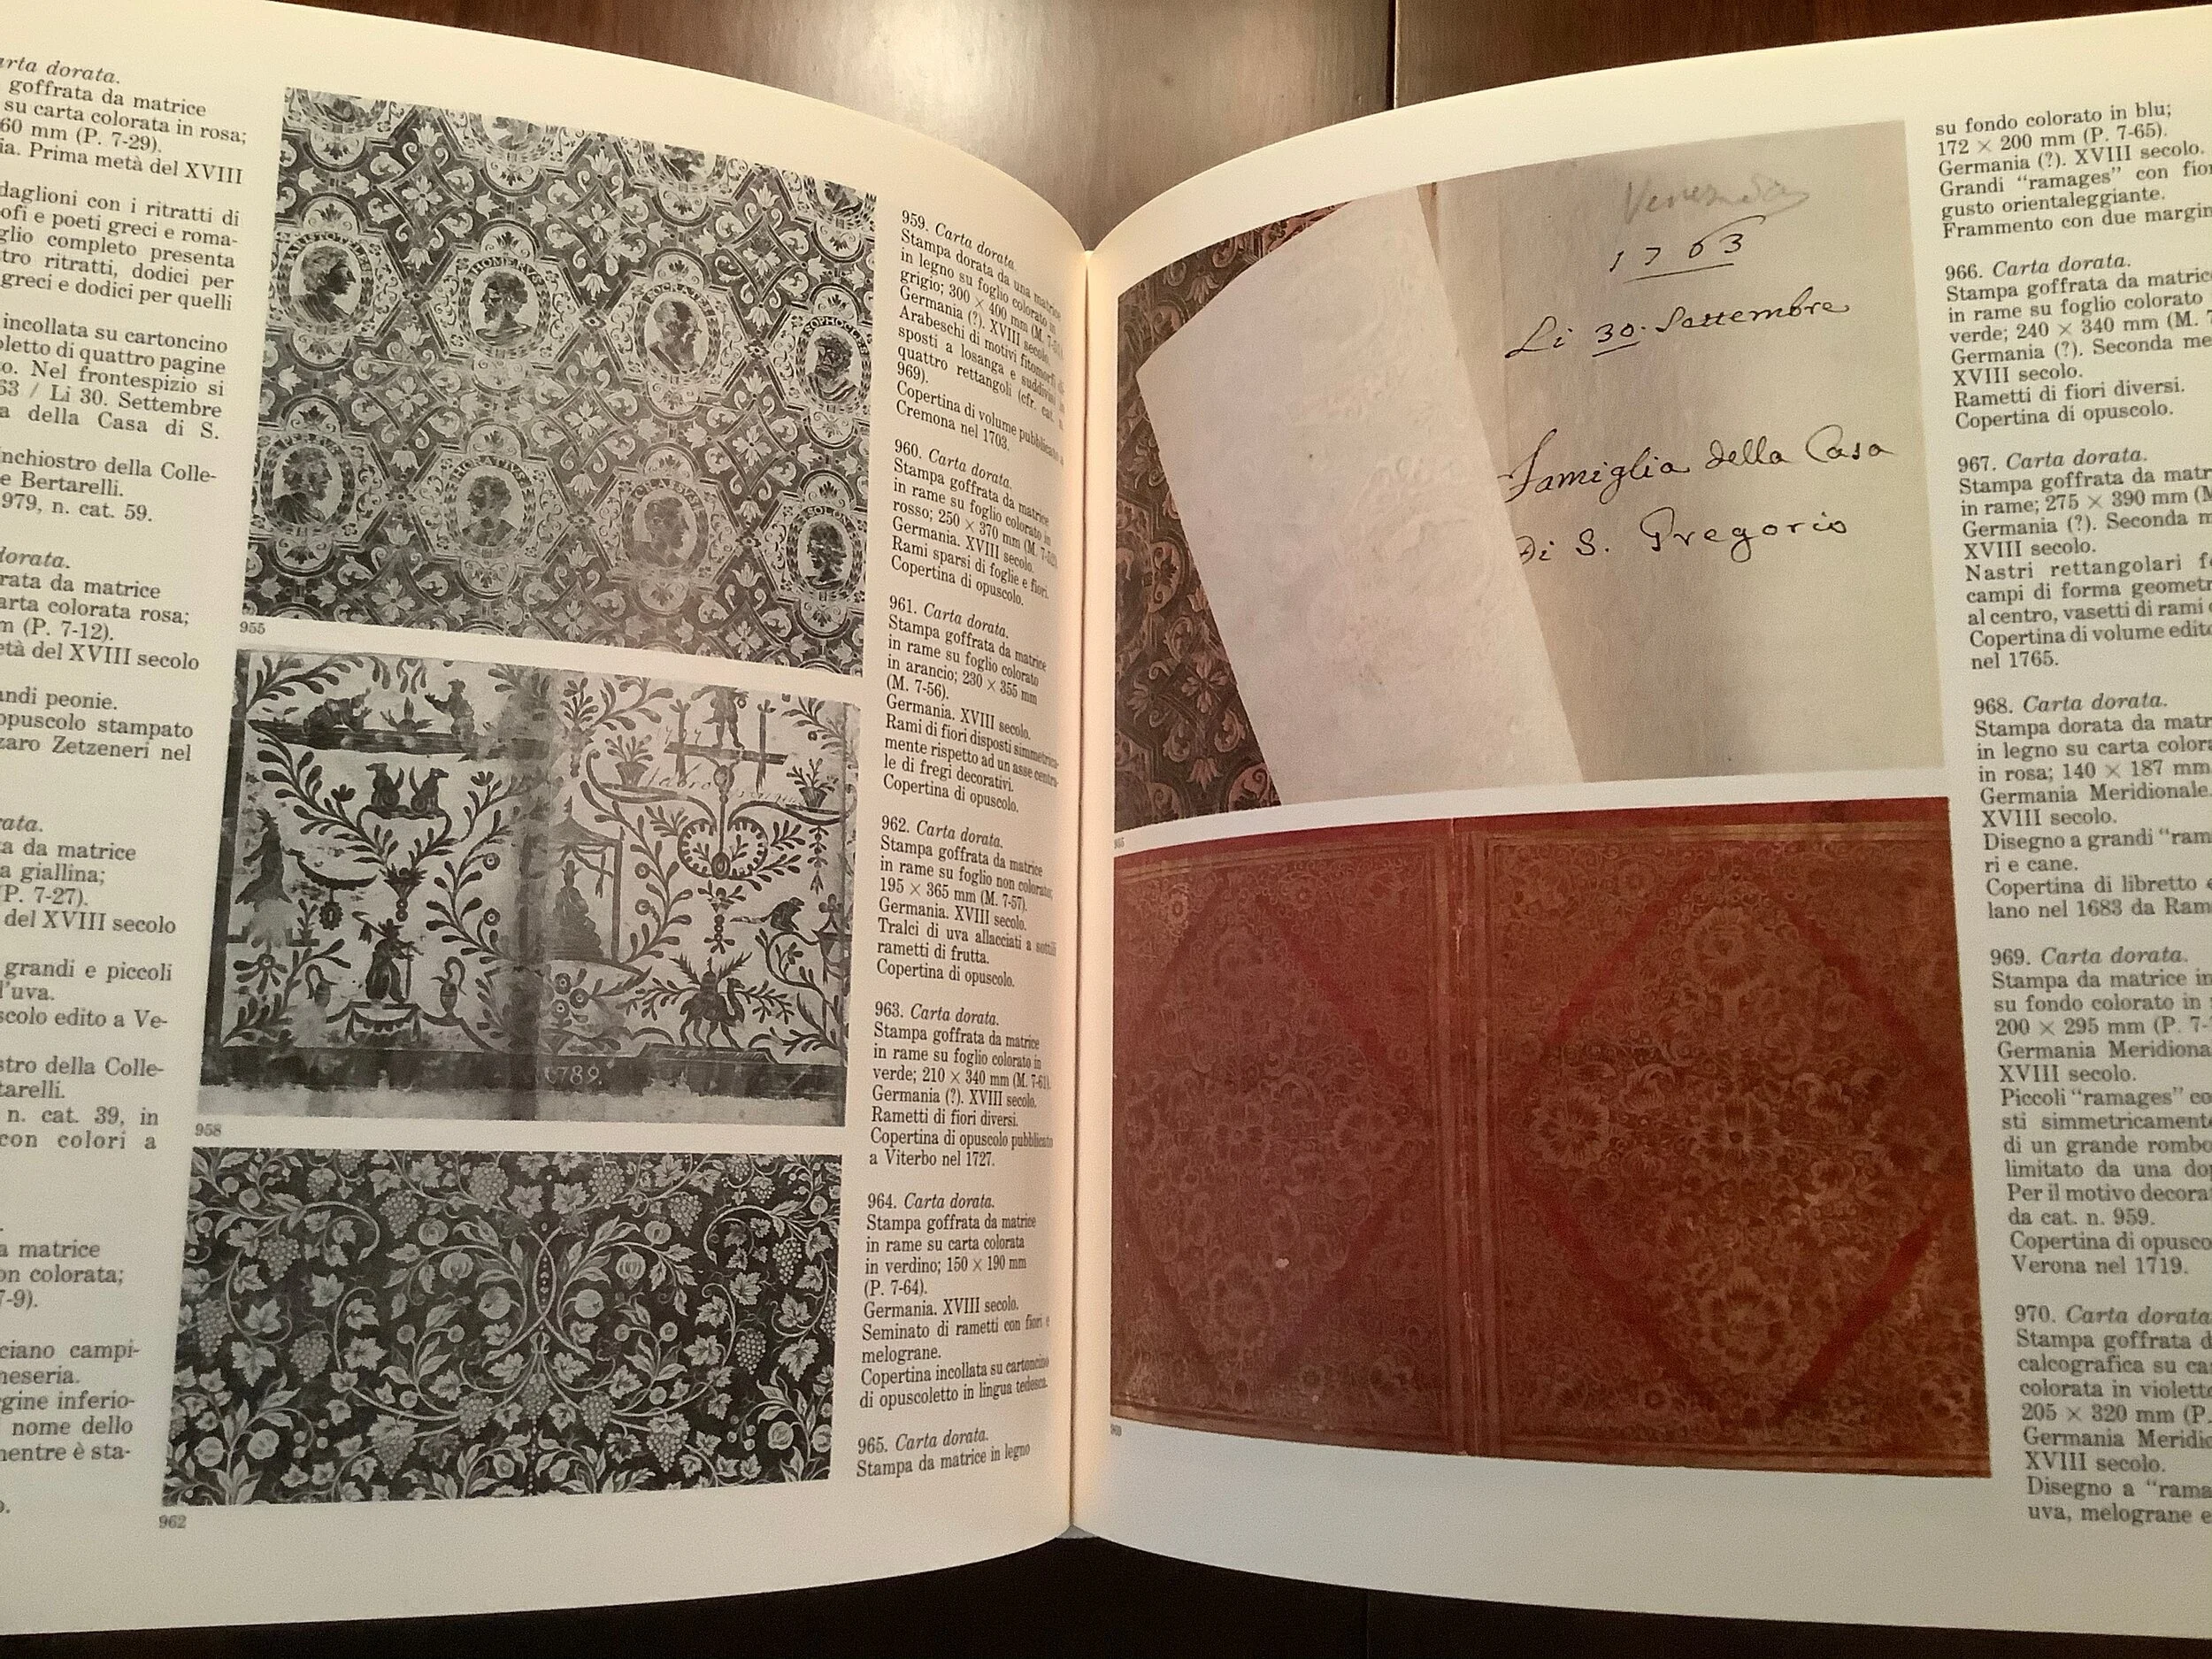 arta dorata.
goffrata da matrice
su carta colorata in rosa;
60 mm (P. 7-29).
ia. Prima metà del XVIII
daglioni con i ritratti di
ofi e poeti greci e roma-
glio completo presenta
tro ritratti, dodici per
greci e dodici per quelli
incollata su cartoncino
oletto di quattro pagine
o. Nel frontespizio si
63 / Li 30. Settembre
a della Casa di S.
nchiostro della Colle-
e Bertarelli.
979, n. cat. 59.
dorata.
rata da matrice
arta colorata rosa;
m (P. 7-12).
età del XVIII secolo
andi peonie.
opuscolo stampato
zaro Zetzeneri nel
rata.
ta da matrice
a giallina;
(P. 7-27).
del XVIII secolo
grandi e piccoli
l'uva.
scolo edito a Ve-
stro della Colle-
tarelli.
n. cat. 39, in
con colori a
a matrice
on colorata;
7-9).
ciano campi-
neseria.
rgine inferio-
nome dello
mentre è sta-
o.
ARISTOTELES
HOMERVS
SOCRATES
SOPHOCLES
HORATIVS
SOLON
955
1789.
958
962
959. Carta dorata.
Stampa dorata da una matrice
in legno su foglio colorato in
grigio; 300 × 400 mm (M.
Germania (?). XVIII secolo.
Arabeschi di motivi fitomorfi di-
sposti a losanga e suddivisi in
quattro rettangoli (cfr. cat. n.
969).
Copertina di volume pubblicato a
Cremona nel 1703.
960. Carta dorata.
Stampa goffrata da matrice
in rame su foglio colorato in
rosso; 250 × 370 mm (M.
Germania. XVIII secolo.
Rami sparsi di foglie e fiori.
Copertina di opuscolo.
961. Carta dorata.
Stampa goffrata da matrice
in rame su foglio colorato
in arancio; 230 × 355 mm
(M. 7-56).
Germania. XVIII secolo.
Rami di fiori disposti simmetrica-
mente rispetto ad un asse centra-
le di fregi decorativi.
Copertina di opuscolo.
962. Carta dorata.
Stampa goffrata da matrice
in rame su foglio non colorato;
195 × 365 mm (M. 7-57).
Germania. XVIII secolo.
Tralci di uva allacciati a sottili
rametti di frutta.
Copertina di opuscolo.
963. Carta dorata.
Stampa goffrata da matrice
in rame su foglio colorato in
verde; 210 × 340 mm (M. 7-61).
Germania (?). XVIII secolo.
Rametti di fiori diversi.
Copertina di opuscolo pubblicato
a Viterbo nel 1727.
964. Carta dorata.
Stampa goffrata da matrice
in rame su carta colorata
in verdino; 150 × 190 mm
(P. 7-64).
Germania. XVIII secolo.
Seminato di rametti con fiori e
melograne.
Copertina incollata su cartoncino
di opuscoletto in lingua tedesca.
965. Carta dorata.
Stampa da matrice in legno
Venezia
1763
Li 30. Settembre
Famiglia della Casa
Di S. Gregorio
su fondo colorato in blu;
172 × 200 mm (P. 7-65).
Germania (?). XVIII secolo.
Grandi "ramages" con fior
gusto orientaleggiante.
Frammento con due margin
966. Carta dorata.
Stampa goffrata da matric
in rame su foglio colorato
verde; 240 × 340 mm (M. 7
Germania (?). Seconda me
XVIII secolo.
Rametti di fiori diversi.
Copertina di opuscolo.
967. Carta dorata.
Stampa goffrata da matr
in rame; 275 × 390 mm (M
Germania (?). Seconda m
XVIII secolo.
Nastri rettangolari f
campi di forma geometr
al centro, vasetti di rami
Copertina di volume edito
nel 1765.
968. Carta dorata.
Stampa dorata da matr
in legno su carta colora
in rosa; 140 × 187 mm
Germania Meridionale.
XVIII secolo.
Disegno a grandi "ram
ri e cane.
Copertina di libretto e
lano nel 1683 da Ram
969. Carta dorata.
Stampa da matrice in
su fondo colorato in
200 × 295 mm (P. 7-
Germania Meridiona
XVIII secolo.
Piccoli "ramages" co
sti simmetricament
di un grande rombo
limitato da una dop
Per il motivo decora
da cat. n. 959.
Copertina di opusco
Verona nel 1719.
970. Carta dorata
Stampa goffrata d
calcografica su ca
colorata in violett
205 × 320 mm (P.
Germania Meridio
XVIII secolo.
Disegno a "rama
uva, melograne e